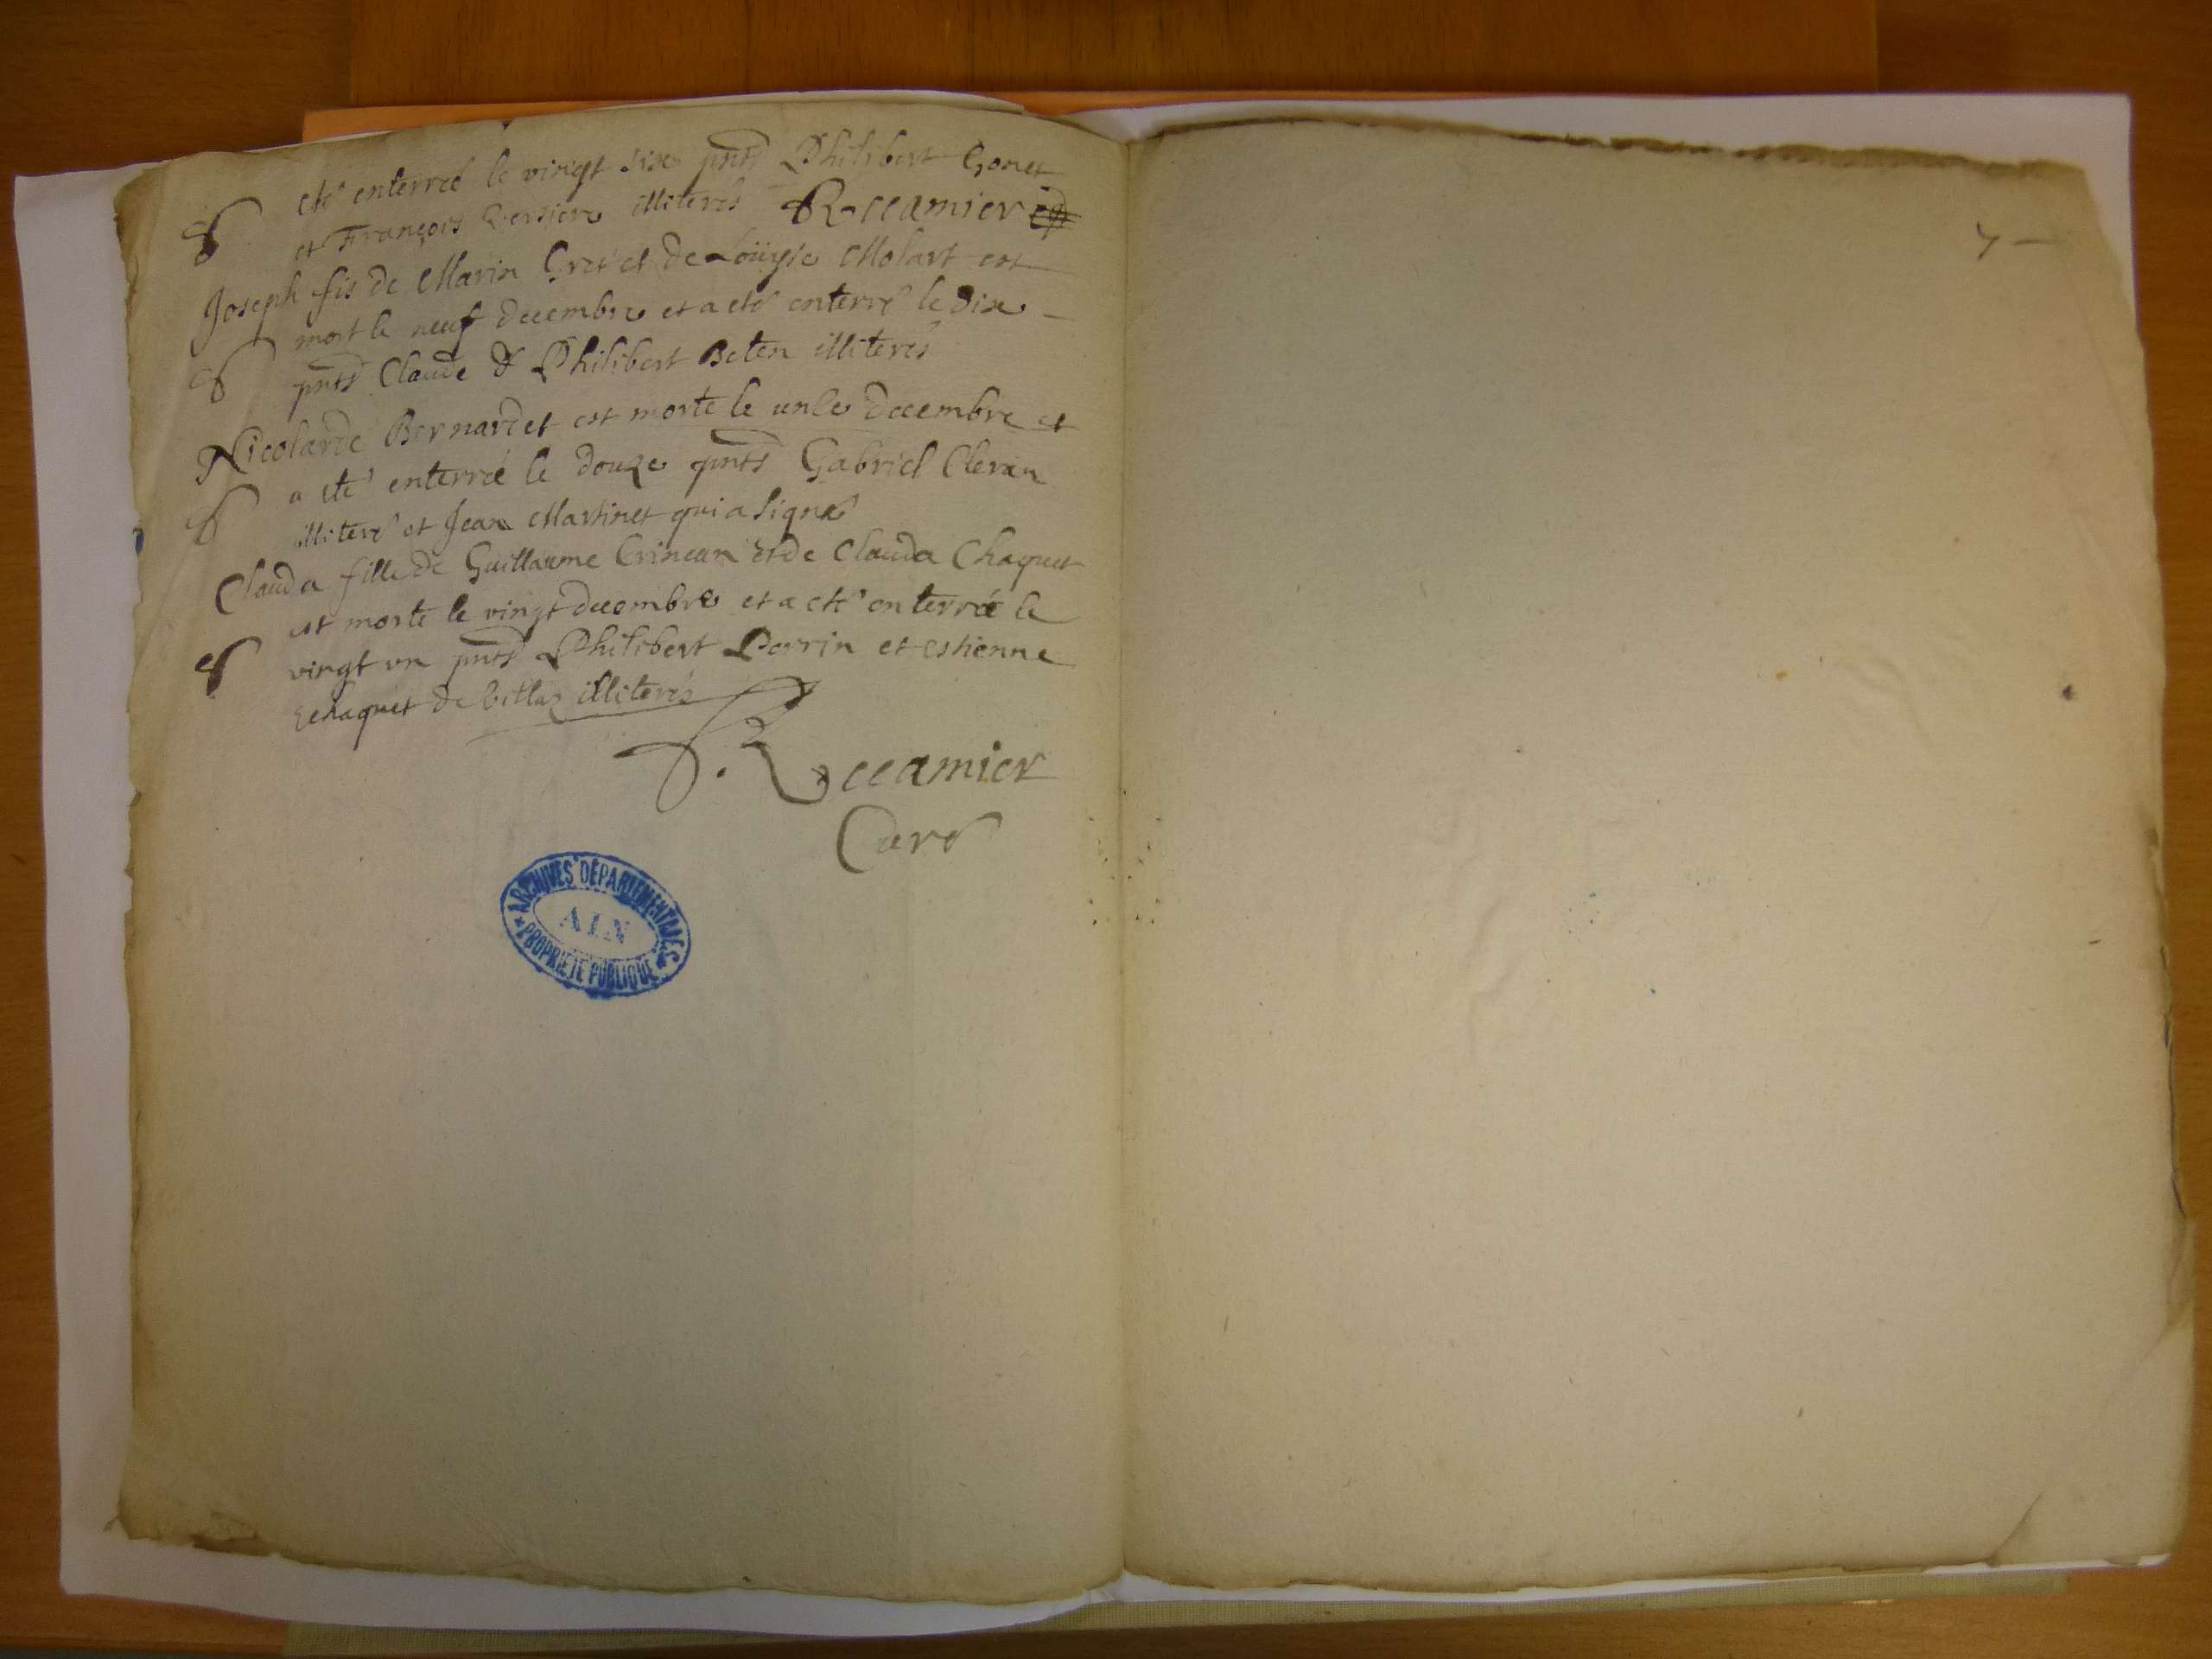 eté enterreé le vingt six pnts Philibert Gonet
et François illiterés Reccamier
Joseph fis de Marin Cret et de Loüyse Molart est
mort le neuf decembre et a eté enterré le dix
pnts Claude & Philibert Beten illiterés
Nicolarde Bernardet est morte le unse decembre et
a eté enterreé le douze pnts Gabriel Cleran
illiteré et Jean Martinet qui a signé
Clauda fille de Guillaume et de Clauda Chaquet
est morte le vingt decembre et a eté enterreé le
vingt un pnts Philibert Perrin et estienne
chaquet de illiterés
Reccamier
Curé
ARCHIVES DÉPARTEMENTALES
AIN
PROPRIÉTÉ PUBLIQUE
7